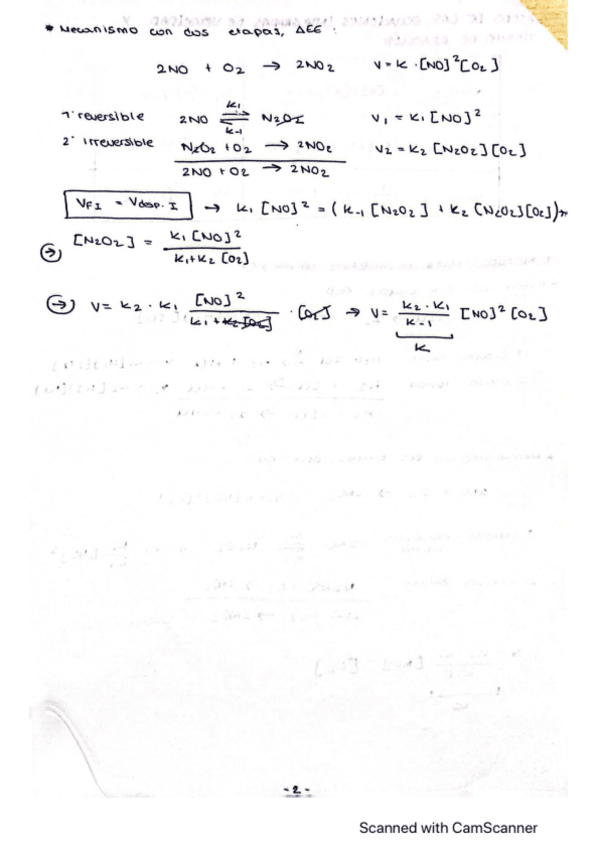 * Mecanismo con dos etapas, AEE:
2NO + O2 → 2NO2 V = K · [NO]²[O2]
1ª reversible 2NO ⇌ N2O2 V1 = K1 [NO]²
K1
K-1
2ª irreversible N2O2 + O2 → 2NO2 V2 = K2 [N2O2][O2]
2NO + O2 → 2NO2
VFI = Vdesp. I → K1 [NO]² = (K-1 [N2O2] + K2 [N2O2][O2])
→ [N2O2] = K1 [NO]² / K1 + K2 [O2]
→ V = K2 · K1 [NO]² / K1 + K2 [O2] · [O2] → V = K2 · K1 / K-1 [NO]² [O2]
K
- 2 -
Scanned with CamScanner